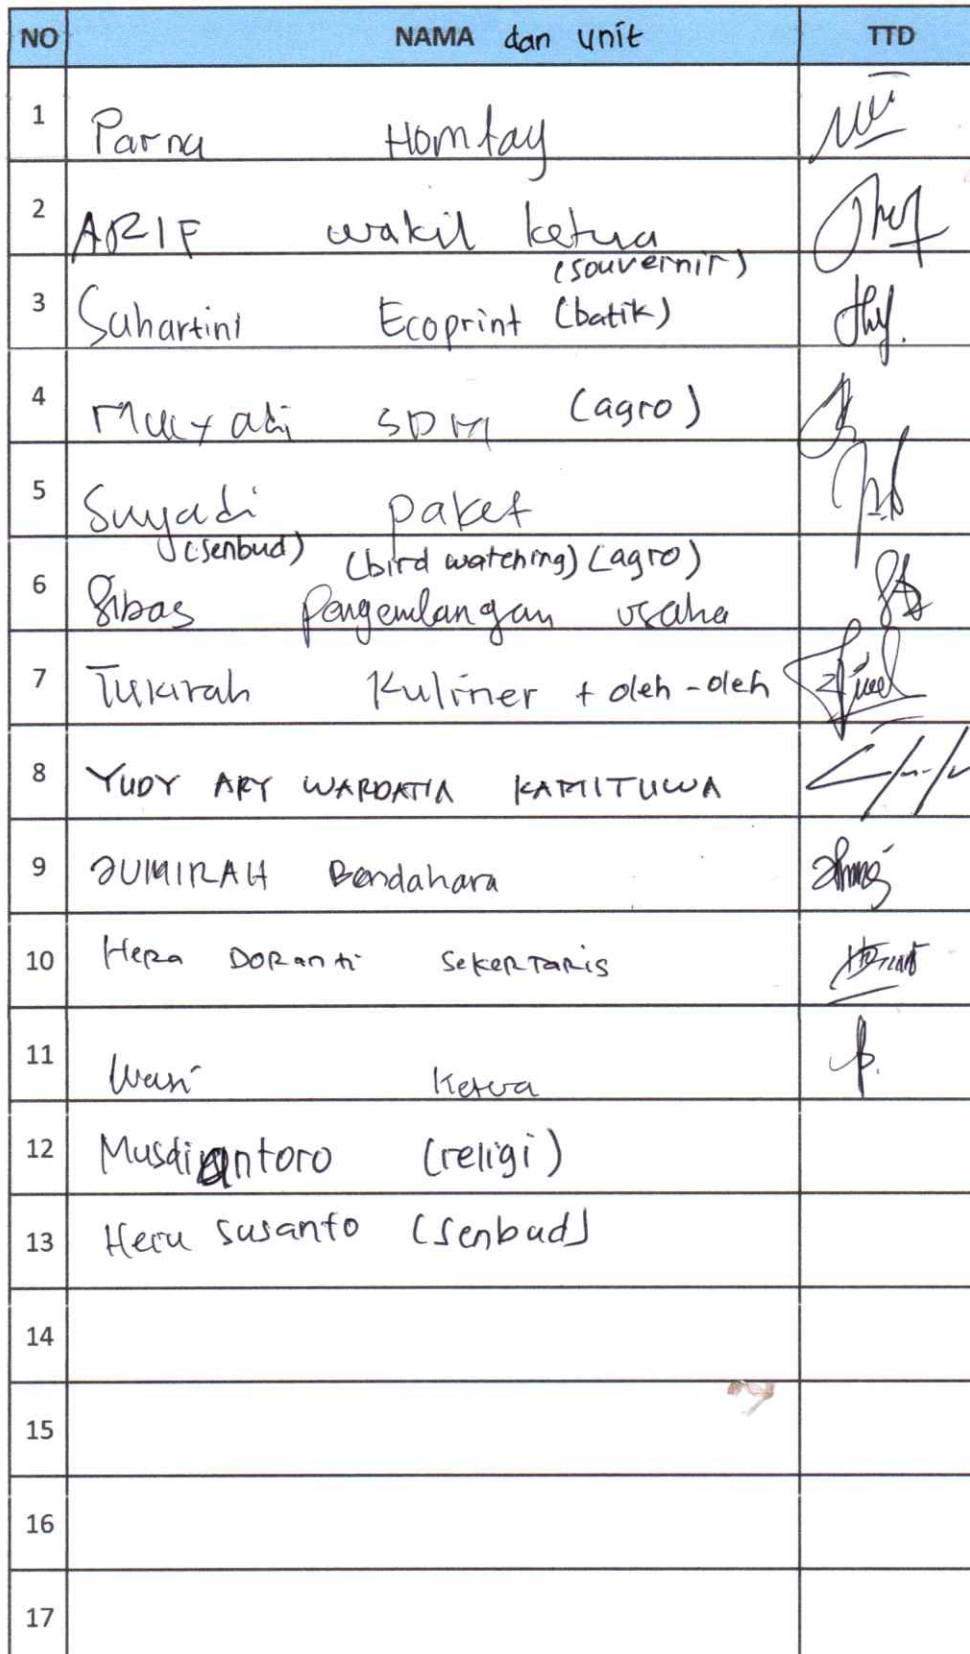 NO NAMA dan unit TTD
1 Parna Homtay
2 ARIF wakil ketua
(souvernir)
3 Suhartini Ecoprint (batik)
4 Muryadi SDM (agro)
5 Suyadi paket
(senbud) (bird watching) (agro)
6 Bibas Pengembangan usaha
7 Tukirah Kuliner + oleh-oleh
8 YUDY ARY WARDATIA KAMITUWA
9 JUMIRAH Bendahara
10 Hera DORanti SekerTaris
11 Wasi Ketua
12 Musdiantoro (religi)
13 Heru Susanto (Senbud)
14
15
16
17